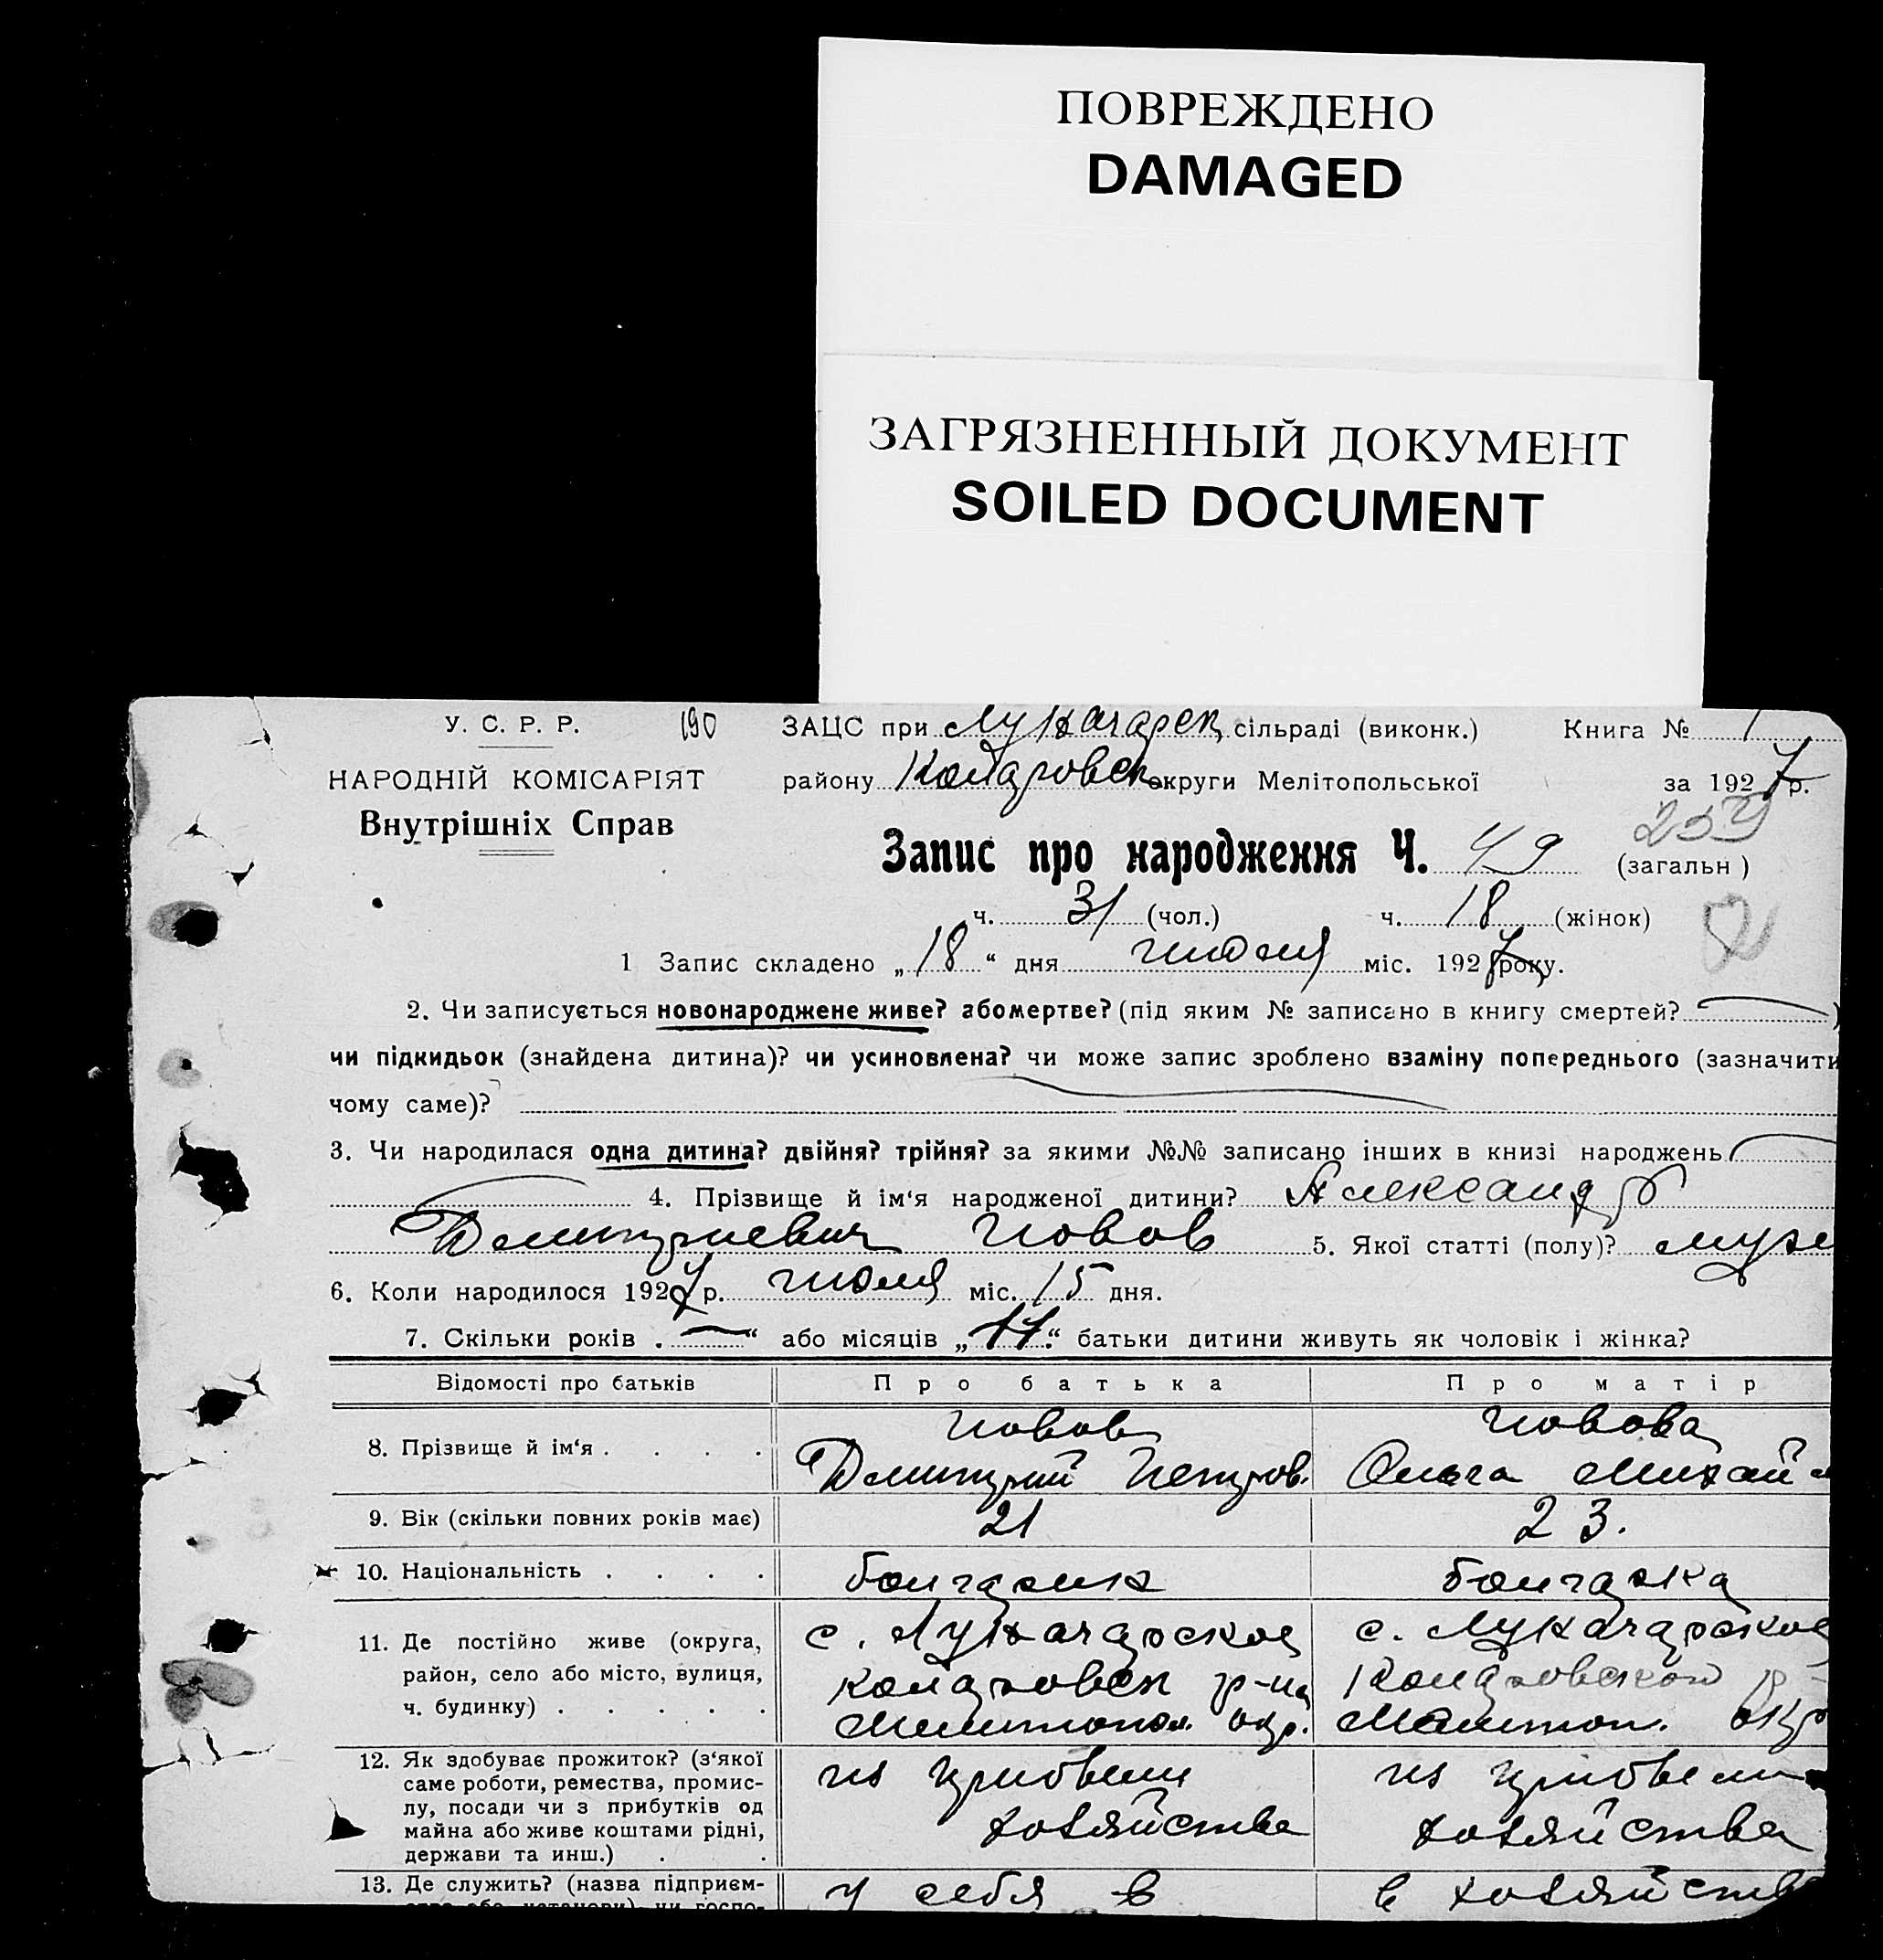 ПОВРЕЖДЕНО
DAMAGED
ЗАГРЯЗНЕННЫЙ ДОКУМЕНТ
SOILED DOCUMENT
У. С. Р. Р. 190 ЗАЦС при Луначарск сільраді (виконк.) Книга № 1
НАРОДНІЙ КОМІСАРІЯТ району округи Мелітопольської за 1927 р.
Внутрішніх Справ
Запис про народження Ч. 49 (загальн )
ч. 31 (чол.) ч. 18 (жінок)
1 Запис складено „ 18 “ дня июля міс. 1927 року.
2. Чи записується новонароджене живе? або мертве? (під яким № записано в книгу смертей? )
чи підкидьок (знайдена дитина)? чи усиновлена? чи може запис зроблено взаміну попереднього (зазначити
чому саме)?
3. Чи народилася одна дитина? двійня? трійня? за якими №№ записано інших в книзі народжень
4. Прізвище й ім‘я народженої дитини? Александр
Дмитриевич Иовов 5. Якої статті (полу)? муж
6. Коли народилося 1927 р. июля міс. 15 дня.
7. Скільки років . — “ або місяців „ 11 “ батьки дитини живуть як чоловік і жінка?
Відомості про батьків Про батька Про матір
Иовов Иовова
8. Прізвище й ім‘я . . . . Дмитрий Петров. Ольга Михайл
9. Вік (скільки повних років має) 21 23.
10. Національність . . . . болгарин болгарка
11. Де постійно живе (округа, с. Луначарское с. Луначарское
район, село або місто, вулиця, р-на
ч. будинку) . . . . . Мелитопол. окр. Мелитоп. окр
12. Як здобуває прожиток? (з‘якої из прибыли из прибыли
саме роботи, ремества, промис-
лу, посади чи з прибутків од хозяйства хозяйства
майна або живе коштами рідні,
держави та инш.) . .
13. Де служить? (назва підприєм- у себя в в хозяйств